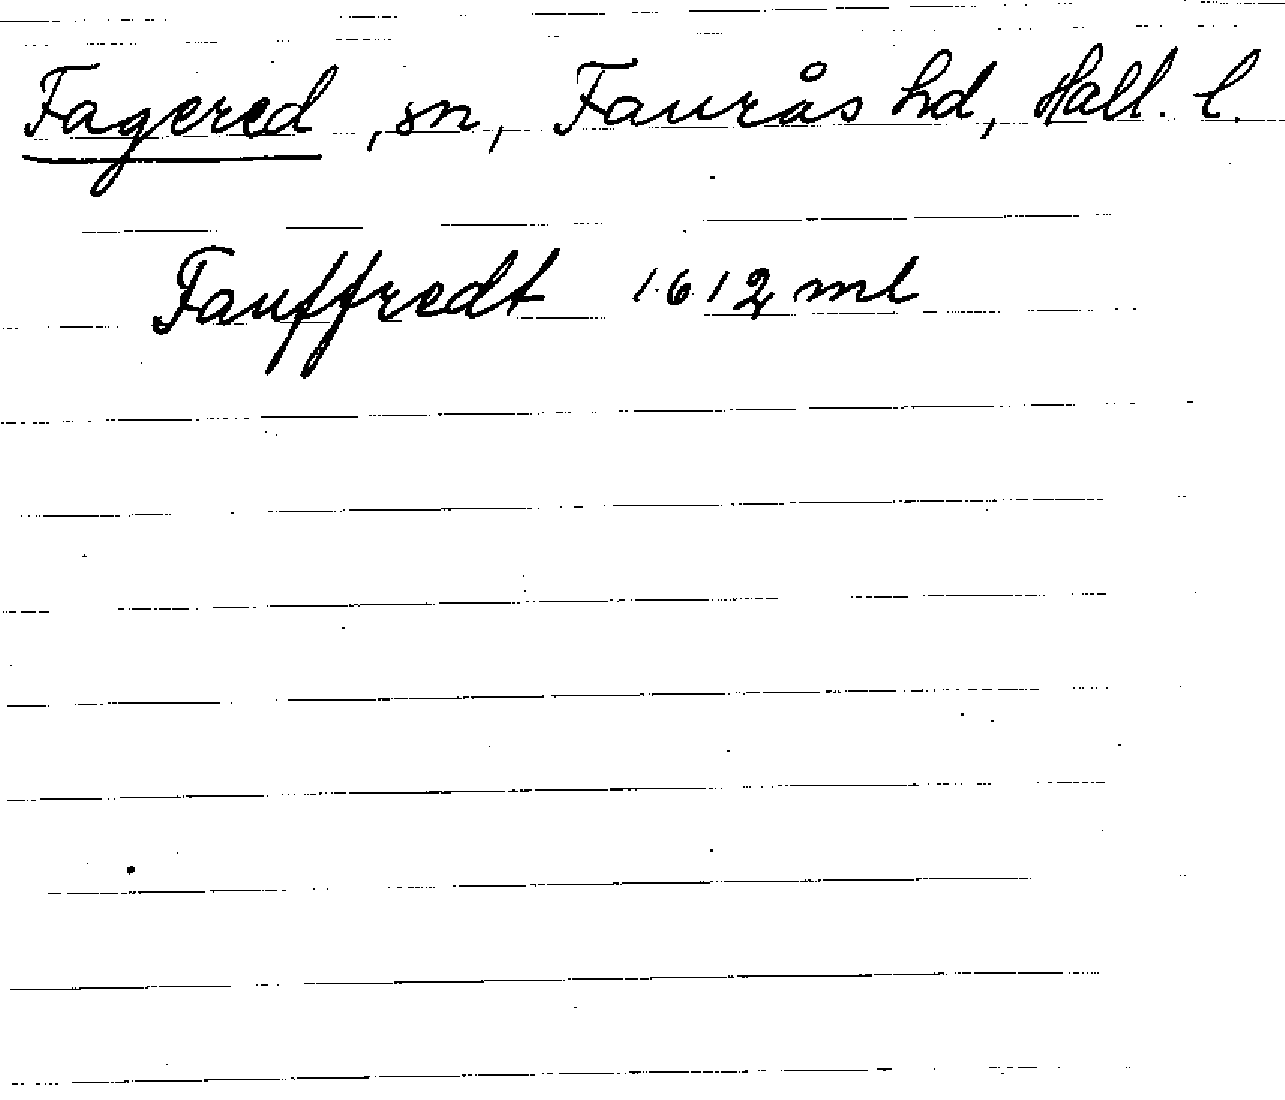 Fagered, sn, Faurås hd, Hall. l.
Fauffredt 1612 ml